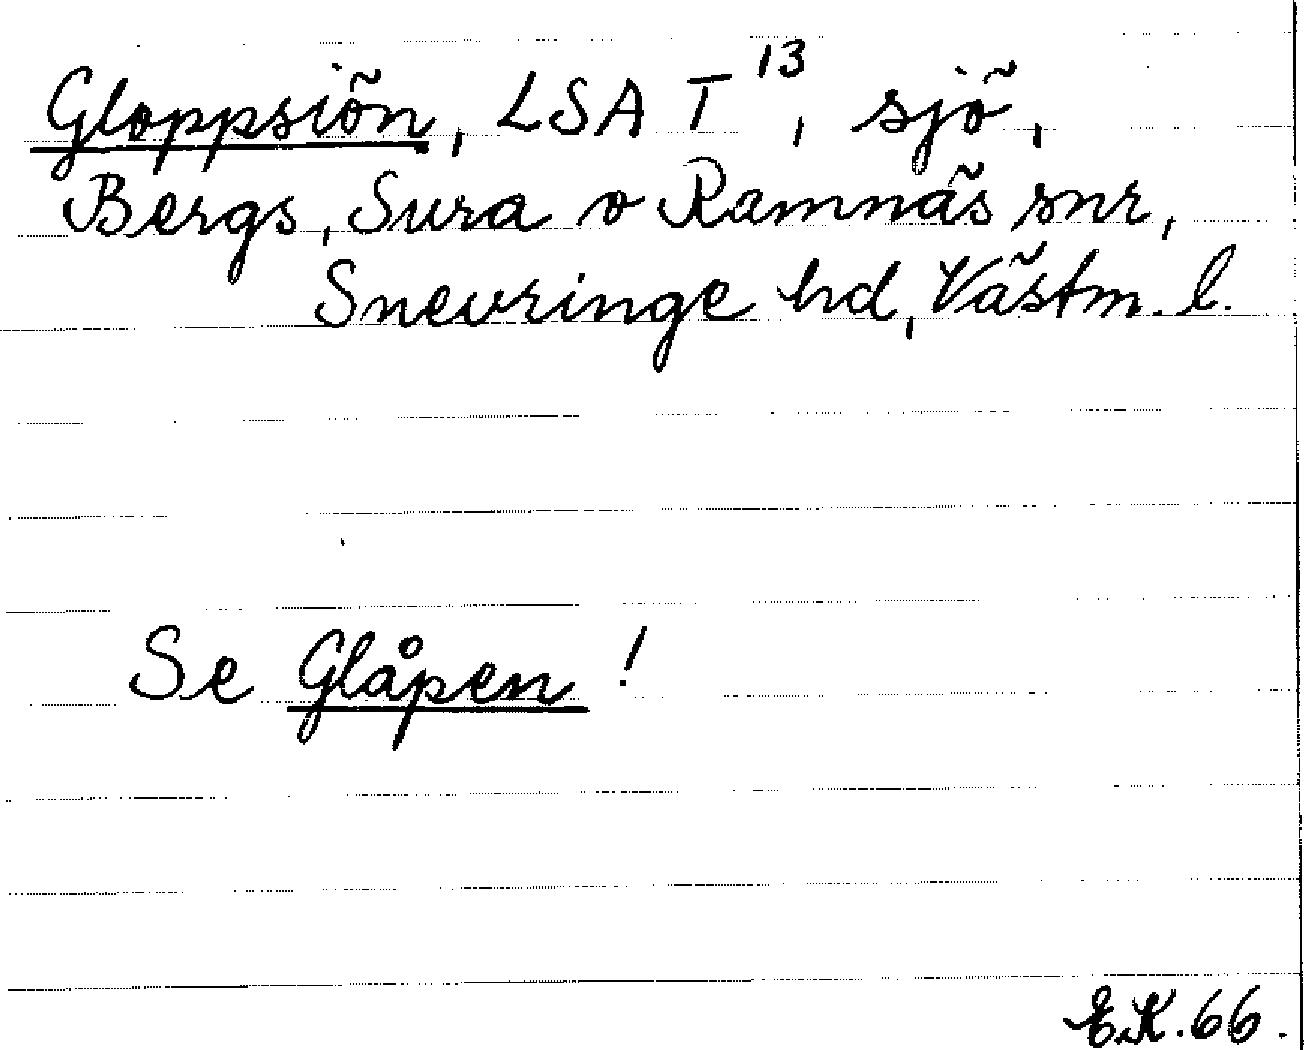 Gloppsiön, LSA T¹³, sjö,
Bergs, Sura o Ramnäs snr,
Snevringe hd, Västm. l.
Se Glåpen !
E.K. 66.